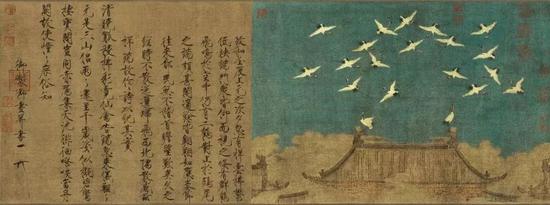 政和壬辰上元之次夕忽有祥雲拂鬱
低映端門眾皆仰而視之倏有群鶴
飛鳴於空中仍有二鶴對止於鴟尾
之端頗甚閒適餘皆翱翔如應奏節
往來都民無不稽首瞻望歎異久之
經時不散迤邐歸飛西北隅散感茲
祥瑞故作詩以紀其實
清曉觚稜拂彩霓仙禽告瑞忽來儀飄飄
元是三山侶兩兩還呈千歲姿似擬碧鸞
棲寶閣豈同赤鴈集天池徘徊嘹唳當丹
闕故使憧憧庶俗知
御製御畫并書